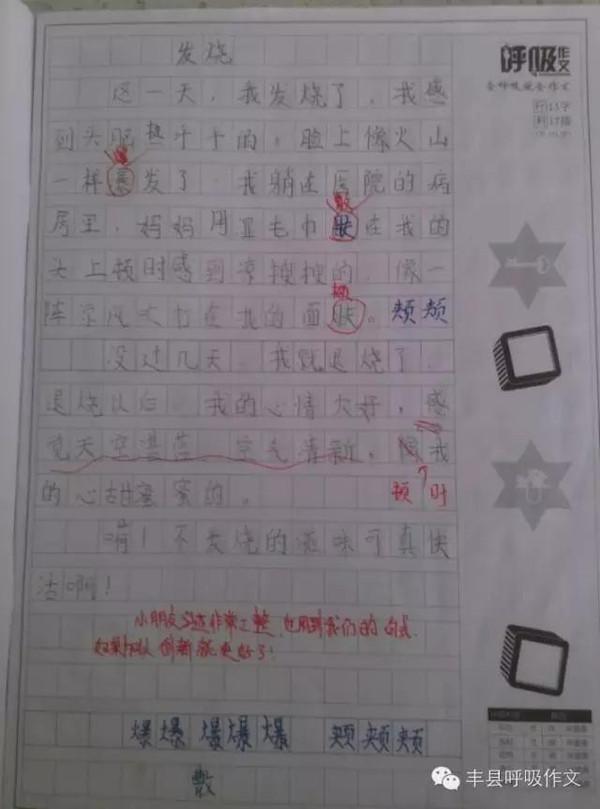 呼吸作文
行15字
列17格
发烧
这一天，我发烧了，我感
到头昏热乎乎的，脸上像火山
爆
一样暴发了。我躺在医院的病
敷
房里，妈妈用湿毛巾敷在我的
头上顿时感到凉搜搜的，像一
颊
阵凉风吹打在我的面颊。颊颊
没过几天，我就退烧了
退烧以后，我的心情大好，感
觉天空湛蓝、空气清新，我
顿时
的心甜蜜蜜的。
啊！不发烧的滋味可真快
活啊！
小朋友书写非常工整，也用到我们的句式，
如果加以创新就更好了！
爆爆爆爆爆 颊颊颊
敷
丰县呼吸作文